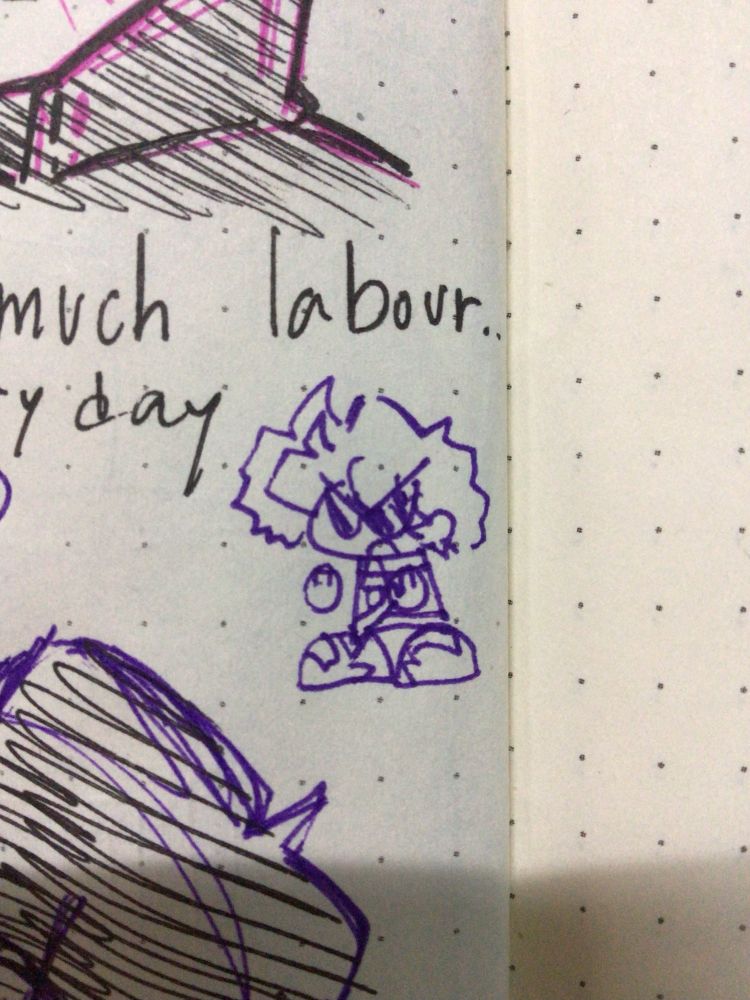 much labour..
y day